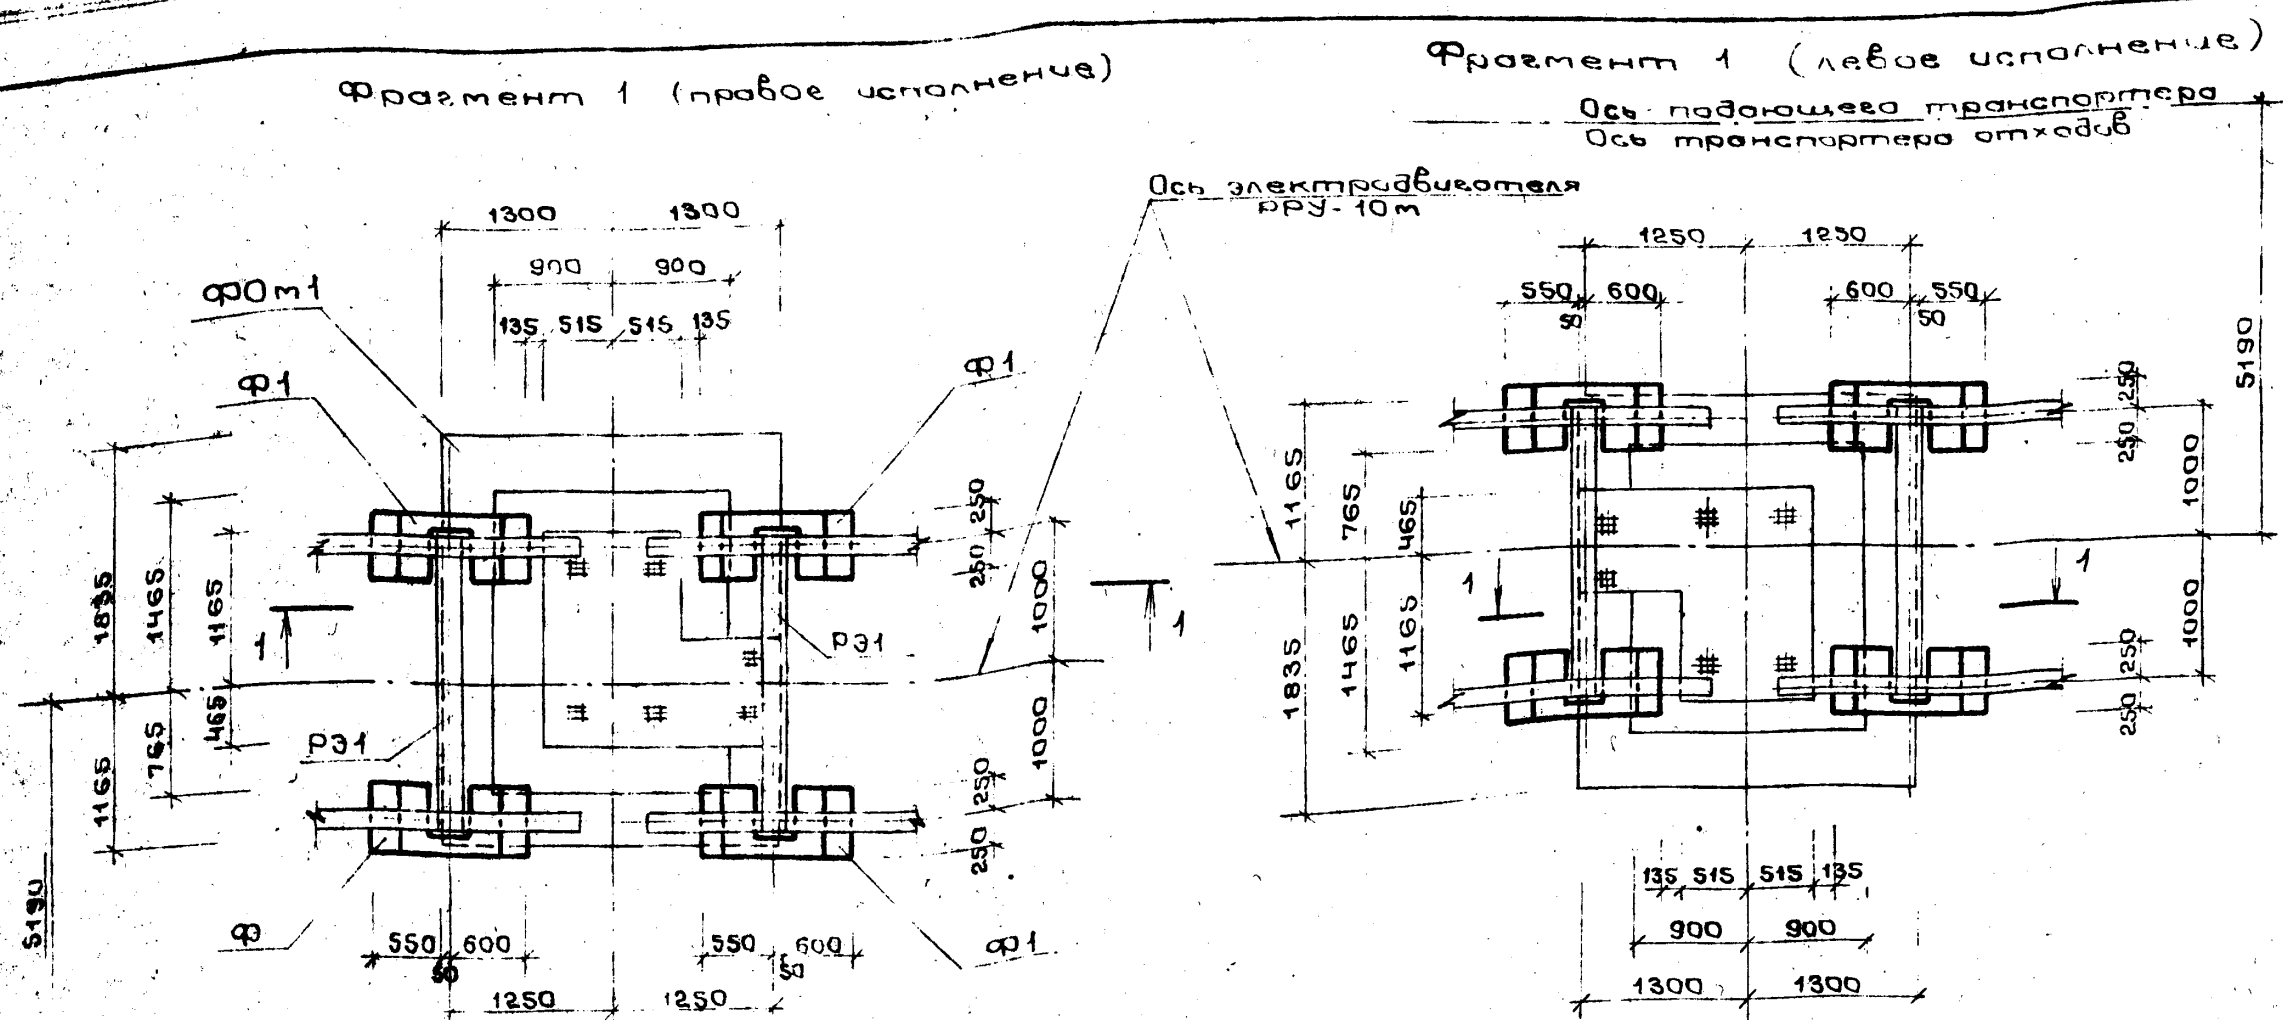 Фрагмент 1 (правое исполнение)
Фрагмент 1 (левое исполнение)
Ось подающего транспортера
Ось транспортера отходов
Ось электродвигателя
РРУ-10т
1300 1300
900 900
135 515 515 135
ФОт1
Ф1
Ф1
1835
1465
1165
1165
765
465
5190
1
1
РЭ1
РЭ1
250
250
1000
1000
250
250
Ф
Ф1
550 600
50
550 600
50
1250 1250
1250 1250
550 600
50
600 550
50
5190
250
250
1000
1000
250
250
1165
765
465
1835
1465
1165
1
1
135 515 515 135
900 900
1300 1300